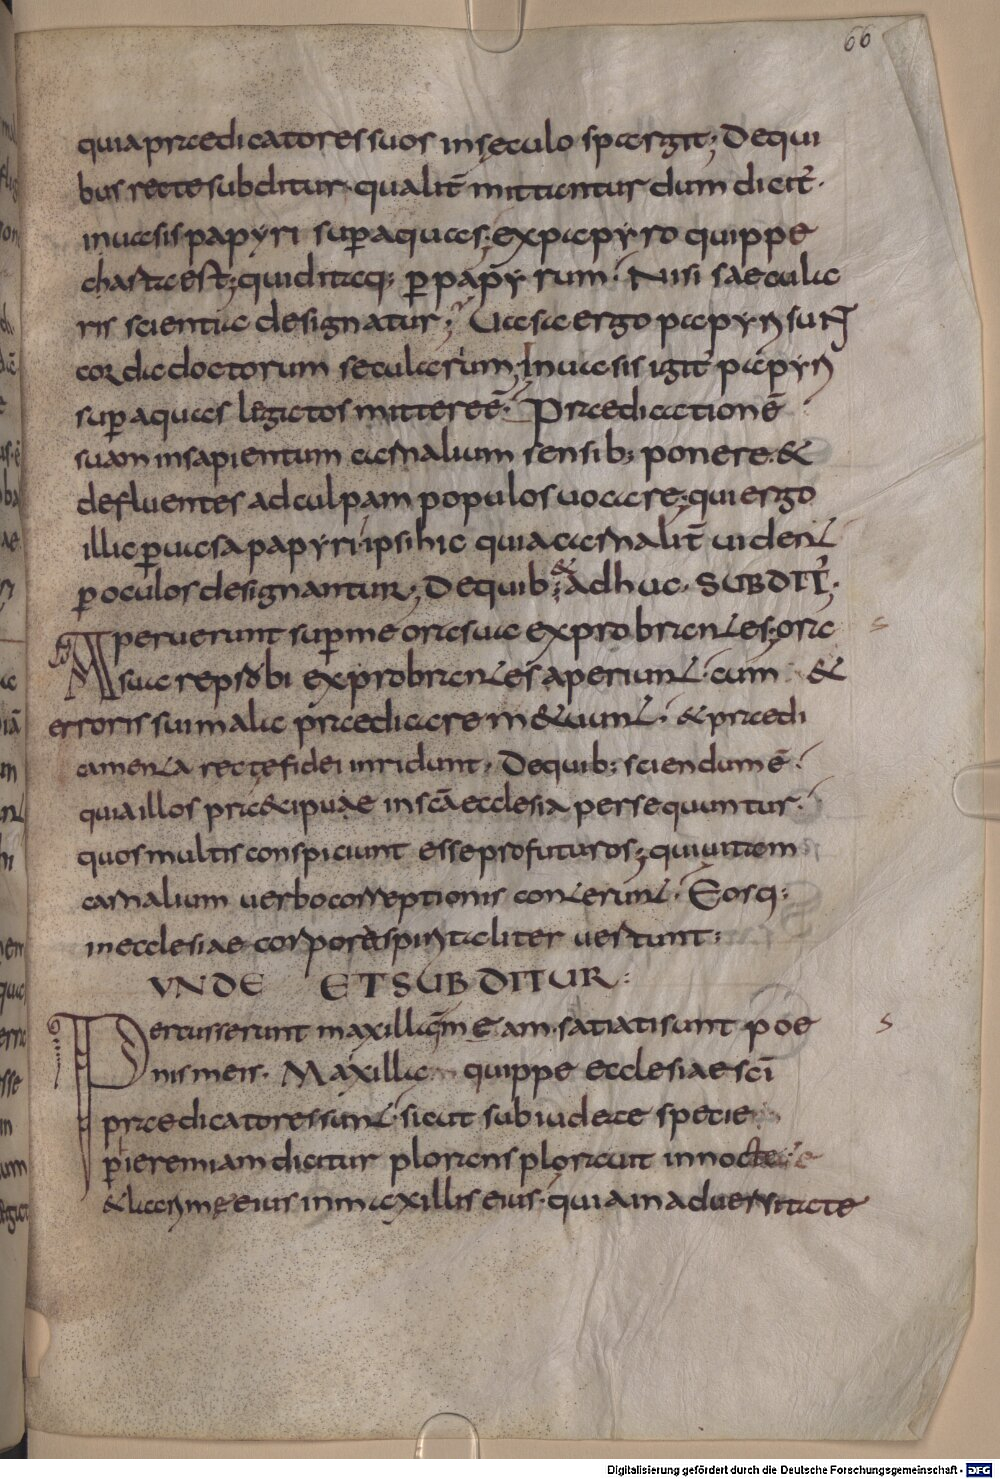 66
quia praedicatores suos in seculo spargit; De qui
bus recte subditur. qualit̄ mittantur dum dicit̄.
in uasis papyri sup aquas; ex papyro quippe
charta est; quid itaq; p papyrum. Nisi saecula
ris scientia designatur; Uasa ergo papyri sunt
corda doctorum secularum; In uasis igit̄ papyri
sup aquas legatos mittere ē. Praedicationē
suam in sapientum carnalium sensib; ponere. &
defluentes ad culpam populos uocare; qui ergo
illic p uasa papyri. ipsi hic quia carnalit̄ uident
p oculos designantur; De quib; & adhuc. SUBDIT̄.
Aperuerunt sup me ora sua exprobrantes; ora
sua reprobi exprobrantes aperiunt. cum &
erroris sui mala praedicare metuunt. & praedi
camenta recte fidei inridunt. De quib; sciendum ē.
quia illos praecipuae in scā ecclesia persequuntur.
quos multis conspiciunt esse profuturos; qui uitam
carnalium uerbo correptionis conterunt. Eosq;
in ecclesiae corpore spiritaliter uertunt;
VNDE ET SUBDITUR:
Percusserunt maxillā meam. satiati sunt poe
nis meis. Maxilla quippe ecclesiae scī
praedicatores sunt. sicut sub iudaeae specie
p ieremiam dicitur plorans plorauit in nocte
& lacrimę eius in maxillis eius. quia in aduersitate
s
s
Digitalisierung gefördert durch die Deutsche Forschungsgemeinschaft - DFG